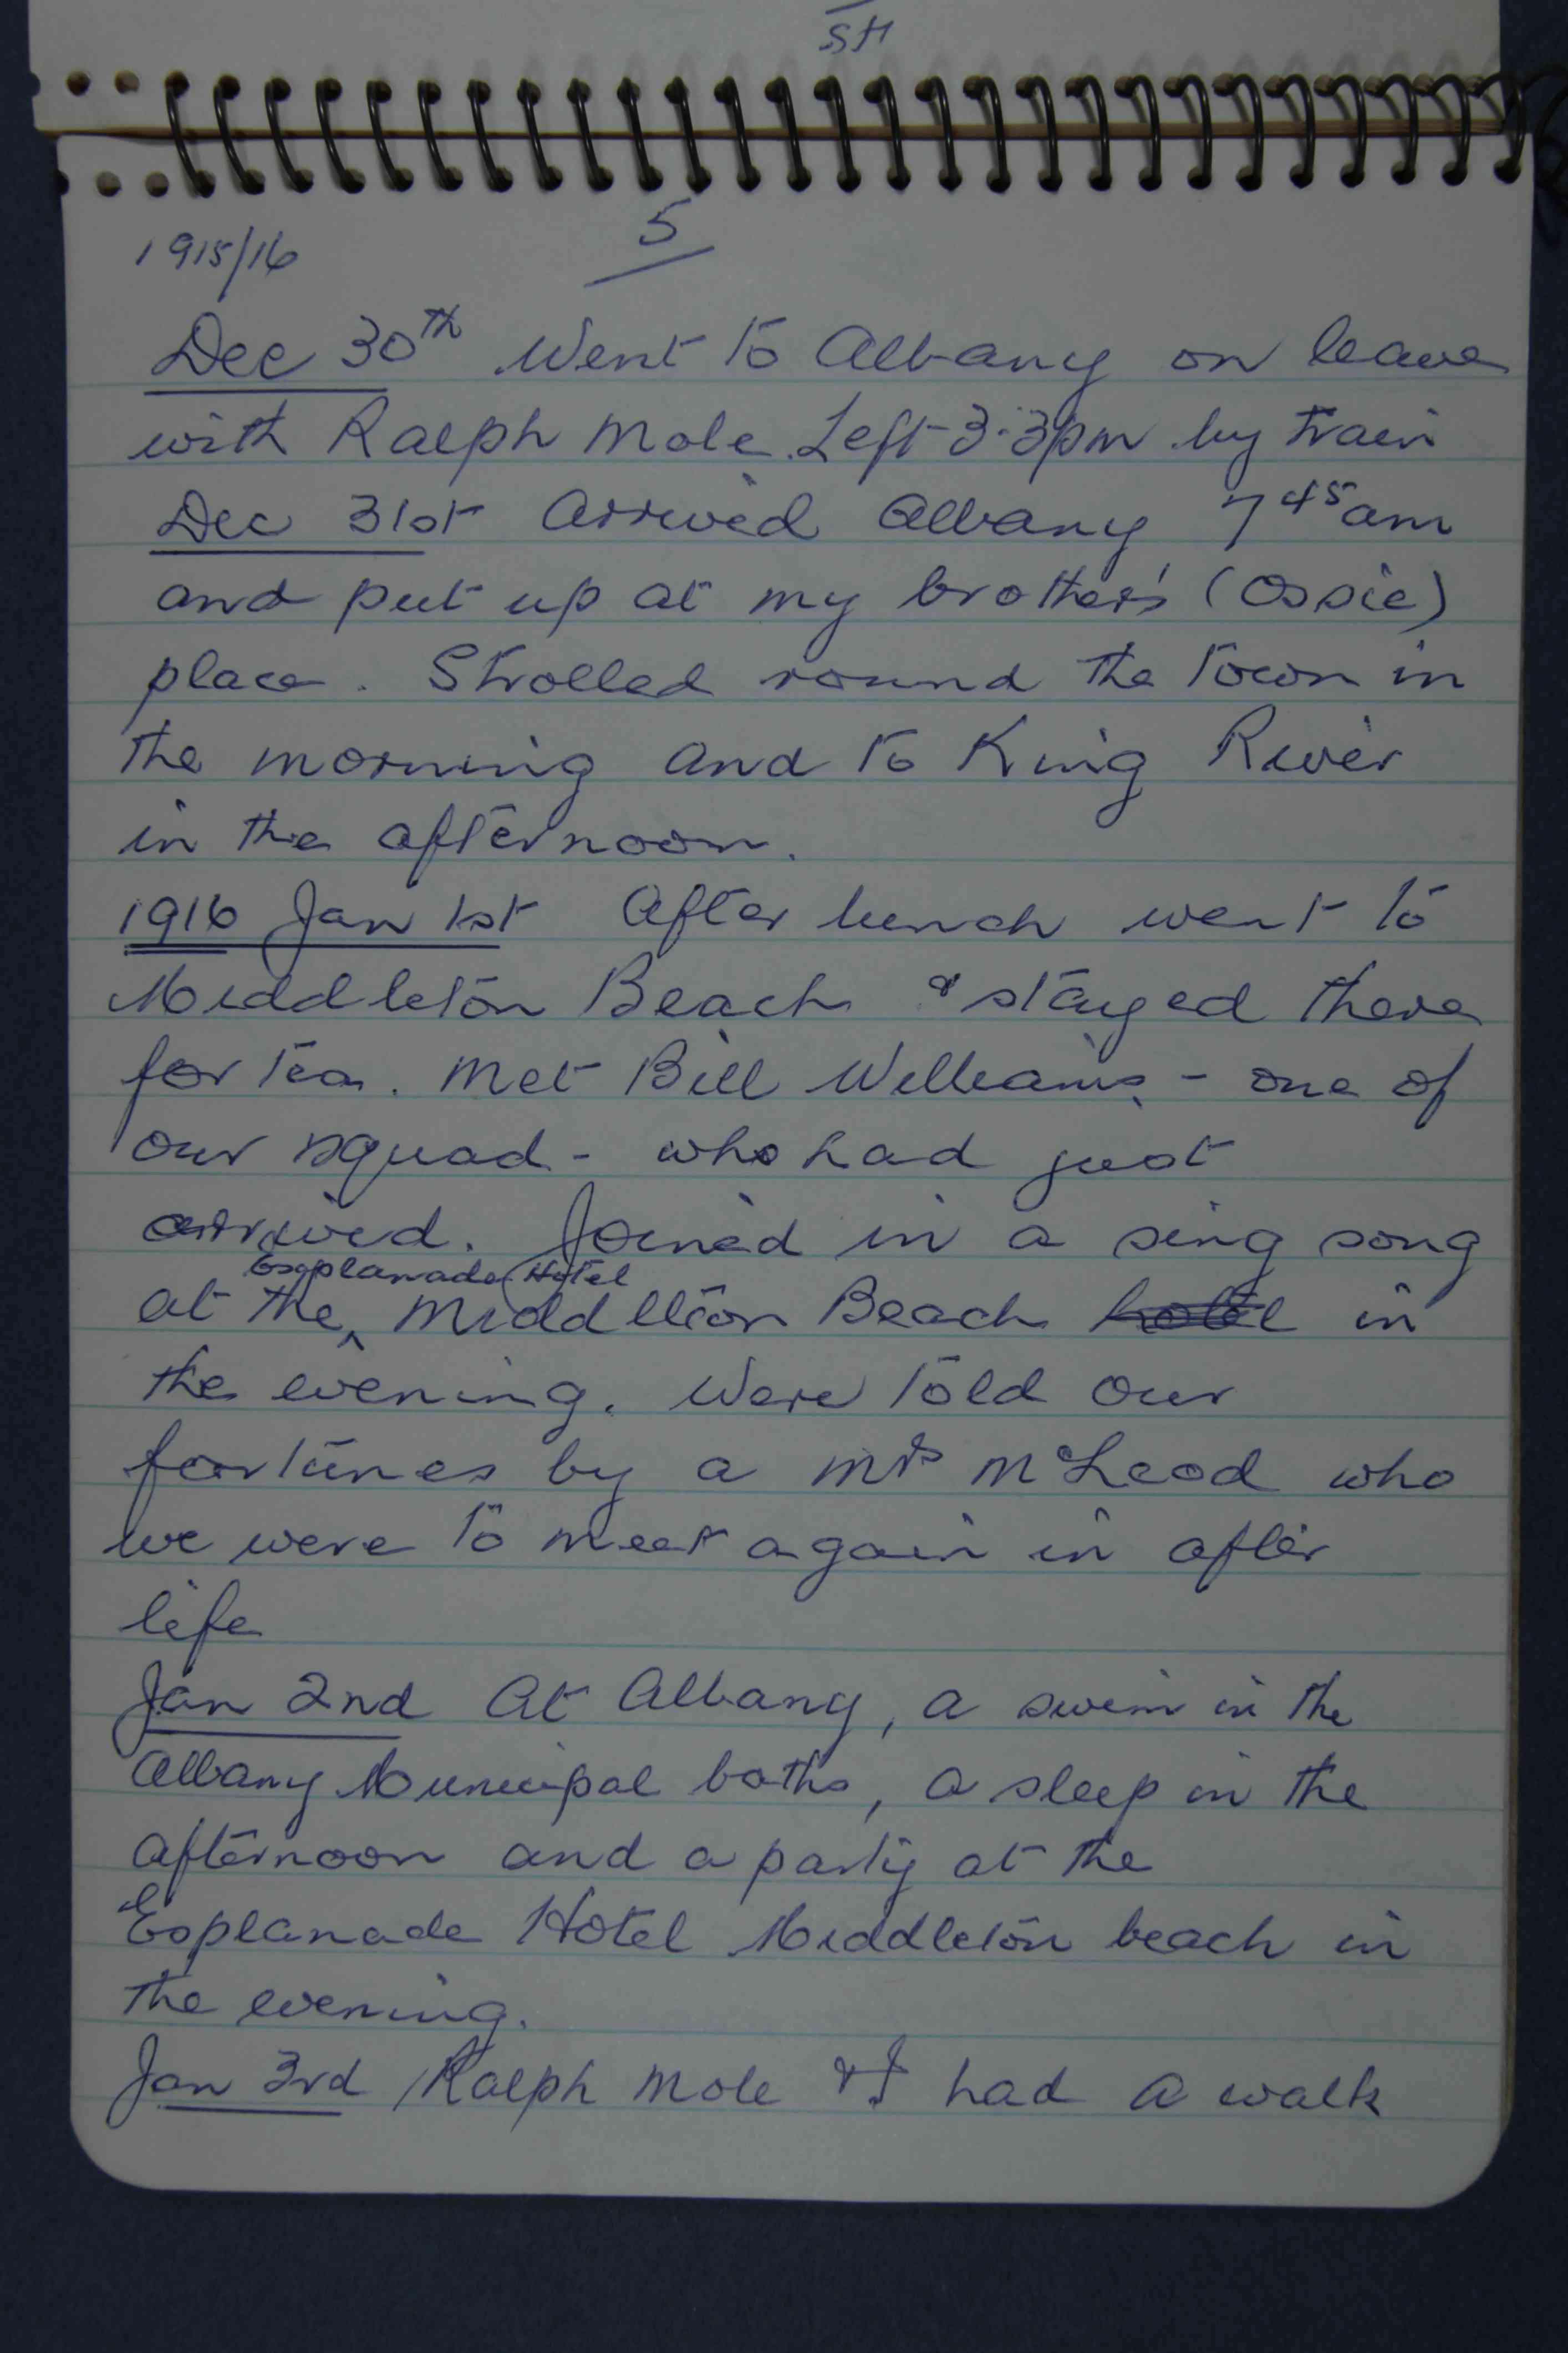 1915/16
5
Dec 30th Went to Albany on leave
with Ralph Mole. Left 3.3pm by train
Dec 31st Arrived Albany 7 45 am
and put up at my brother's (Ossie)
place. Strolled round the town in
the morning and to King River
in the afternoon.
1916 Jan 1st After lunch went to
Middleton Beach & stayed there
for tea. Met Bill Williams - one of
our squad - who had just
arrived. Joined in a sing song
Esplanade Hotel
at the Middleton Beach hotel in
the evening. Were told our
fortunes by a Mrs McLeod who
we were to meet again in after
life
Jan 2nd At Albany, a swim in the
Albany Municipal baths, a sleep in the
afternoon and a party at the
Esplanade Hotel Middleton beach in
the evening.
Jan 3rd Ralph Mole & I had a walk